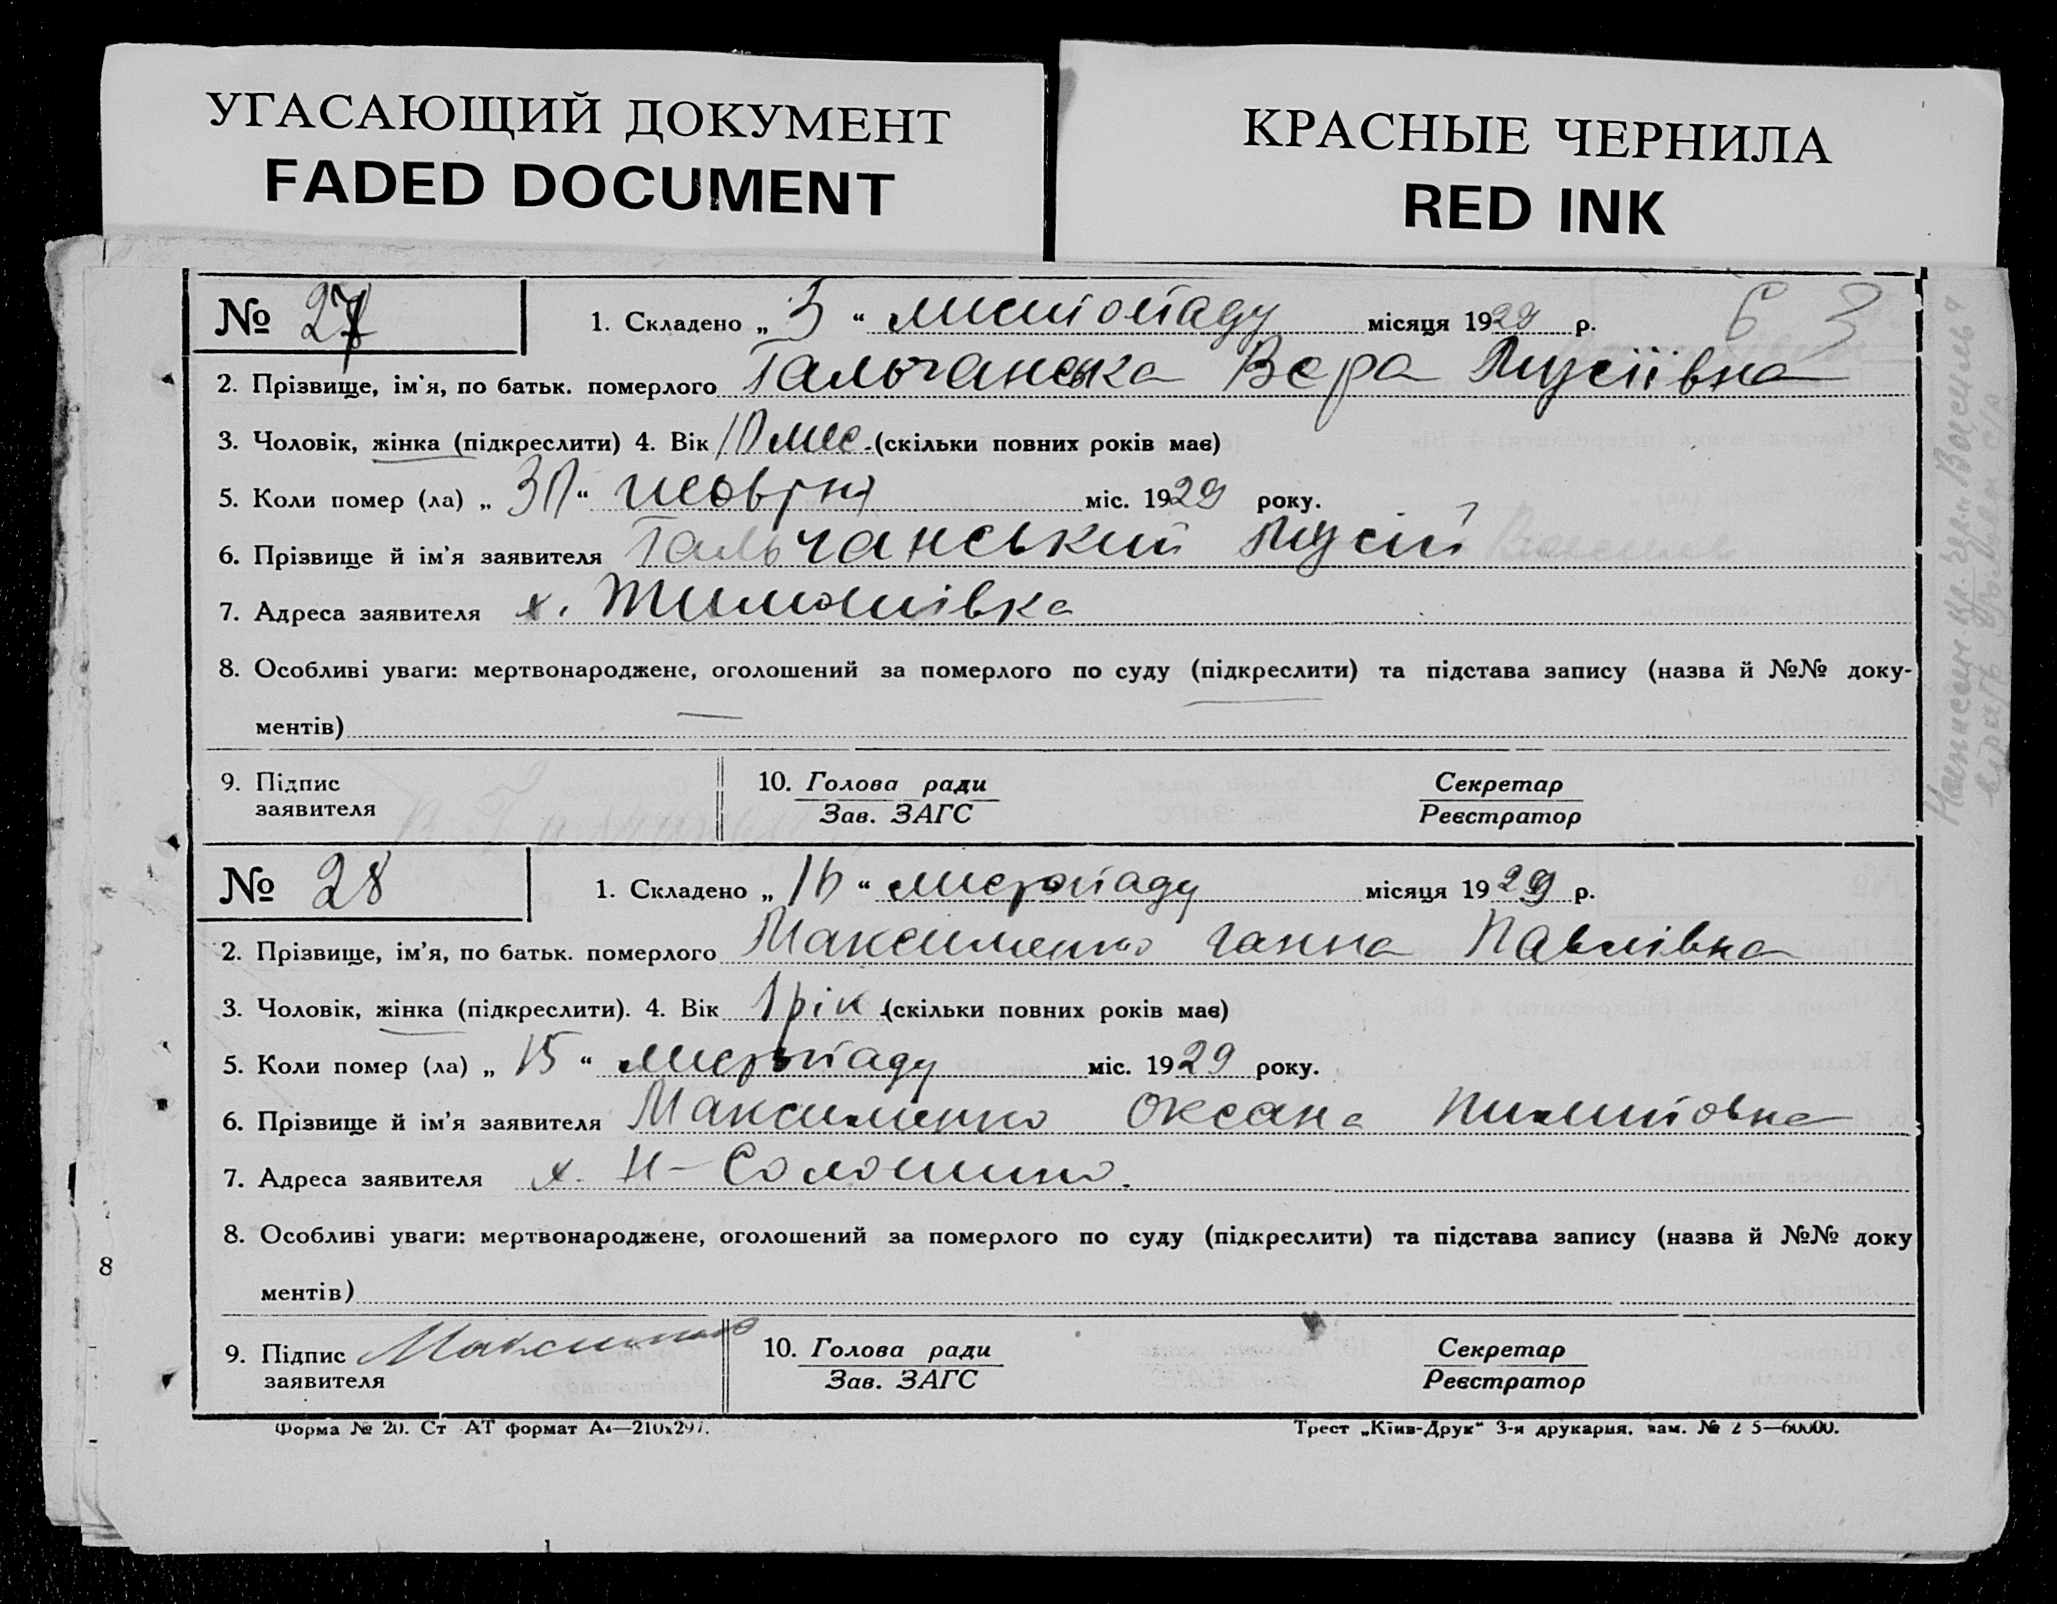 УГАСАЮЩИЙ ДОКУМЕНТ
FADED DOCUMENT
КРАСНЫЕ ЧЕРНИЛА
RED INK
№ 27 1. Складено „ 3 “ листопаду місяця 1929 р. 63
2. Прізвище, ім'я, по батьк. померлого Гальчанська Вера Мусіївна
3. Чоловік, жінка (підкреслити) 4. Вік 10 мес. (скільки повних років має)
5. Коли помер (ла) „ 30 “ жовтня міс. 1929 року.
6. Прізвище й ім'я заявителя Гальчанський Мусій
7. Адреса заявителя х. Тимошівка
8. Особливі уваги: мертвонароджене, оголошений за померлого по суду (підкреслити) та підстава запису (назва й №№ доку-
ментів)
9. Підпис
заявителя
10. Голова ради
Зав. ЗАГС
Секретар
Реєстратор
№ 28 1. Складено „ 16 “ листопаду місяця 1929 р.
2. Прізвище, ім'я, по батьк. померлого Максименко Ганна Павлівна
3. Чоловік, жінка (підкреслити). 4. Вік 1 рік (скільки повних років має)
5. Коли помер (ла) „ 15 “ листопаду міс. 1929 року.
6. Прізвище й ім'я заявителя Максименко Оксана Пилиповна
7. Адреса заявителя х. Н-Солошино.
8. Особливі уваги: мертвонароджене, оголошений за померлого по суду (підкреслити) та підстава запису (назва й №№ доку
ментів)
9. Підпис Максименко
заявителя
10. Голова ради
Зав. ЗАГС
Секретар
Реєстратор
8
Форма № 20. Ст АТ формат А4—210х297.
Трест „Київ-Друк“ 3-я друкарня, зам. № 2 5—60000.